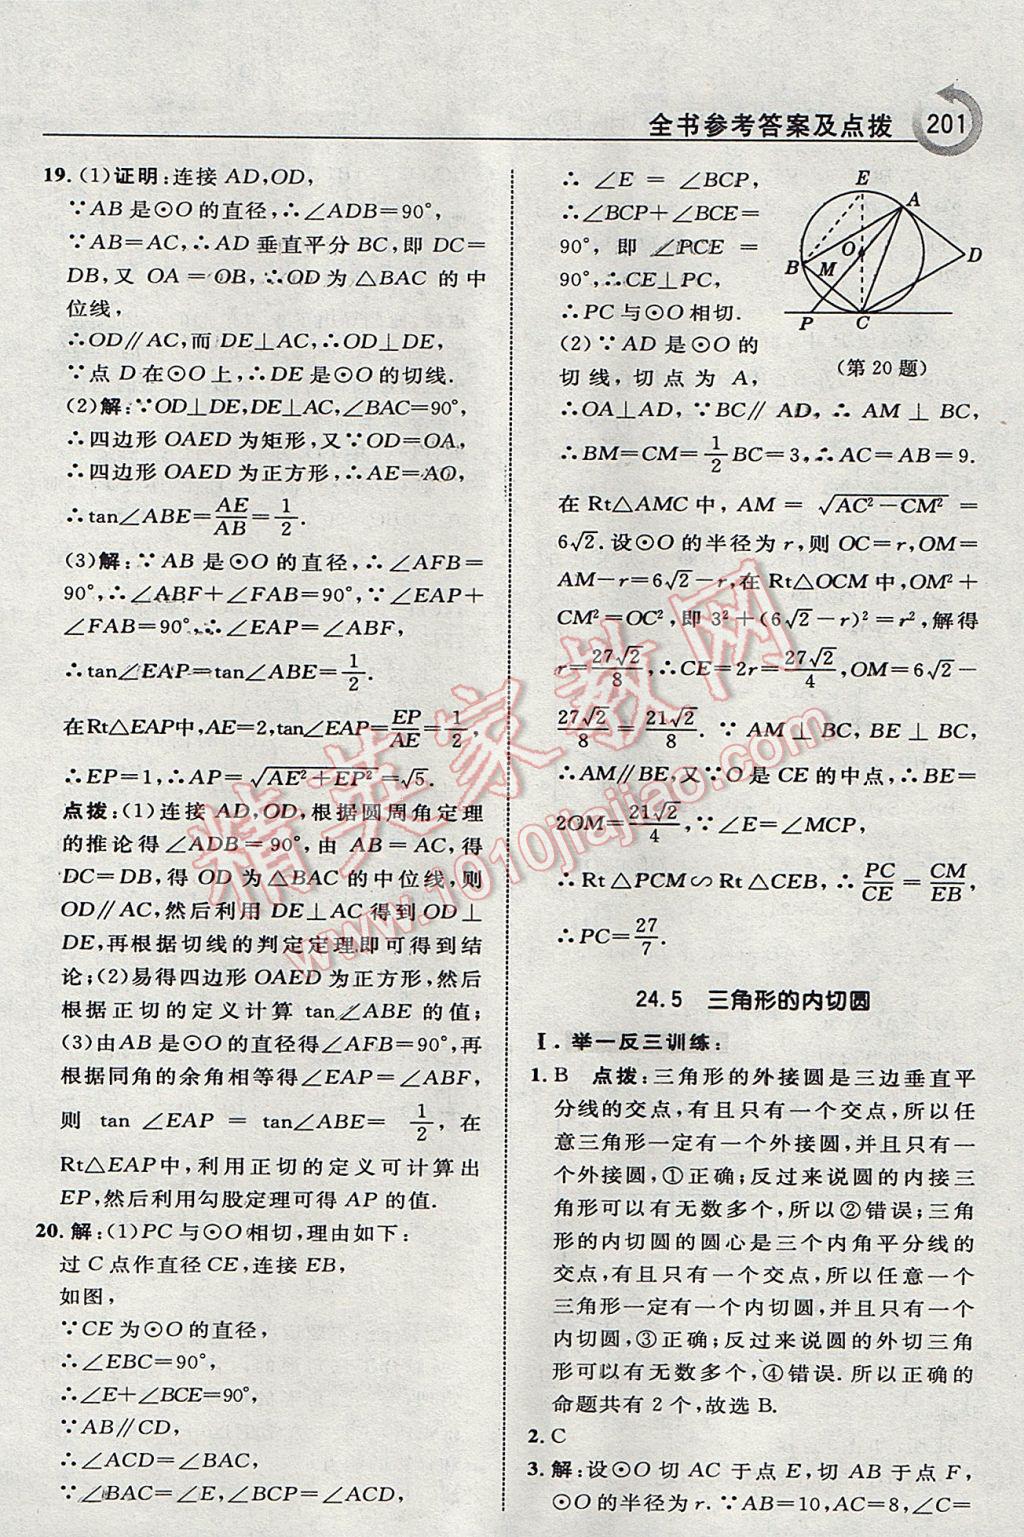 全书参考答案及点拨 201
19. (1)证明:连接 AD,OD,
∵AB 是⊙O 的直径,∴∠ADB=90°,
∵AB=AC,∴AD 垂直平分 BC,即 DC=
DB,又 OA=OB,∴OD 为△BAC 的中
位线,
∴OD∥AC,而 DE⊥AC,∴OD⊥DE,
∵点 D 在⊙O 上,∴DE 是⊙O 的切线.
(2)解:∵OD⊥DE,DE⊥AC,∠BAC=90°,
∴四边形 OAED 为矩形,又∵OD=OA,
∴四边形 OAED 为正方形,∴AE=AO,
∴tan∠ABE=AE/AB=1/2.
(3)解:∵AB 是⊙O 的直径,∴∠AFB=
90°,∴∠ABF+∠FAB=90°,∵∠EAP+
∠FAB=90°,∴∠EAP=∠ABF,
∴tan∠EAP=tan∠ABE=1/2.
在Rt△EAP中,AE=2,tan∠EAP=EP/AE=1/2,
∴EP=1,∴AP=√(AE²+EP²)=√5.
点拨:(1)连接 AD,OD,根据圆周角定理
的推论得∠ADB=90°,由 AB=AC,得
DC=DB,得 OD 为△BAC 的中位线,则
OD∥AC,然后利用 DE⊥AC 得到 OD⊥
DE,再根据切线的判定定理即可得到结
论;(2)易得四边形 OAED 为正方形,然后
根据正切的定义计算 tan∠ABE 的值;
(3)由AB 是⊙O 的直径得∠AFB=90°,再
根据同角的余角相等得∠EAP=∠ABF,
则 tan∠EAP=tan∠ABE=1/2,在
Rt△EAP中,利用正切的定义可计算出
EP,然后利用勾股定理可得 AP 的值.
20. 解:(1)PC 与⊙O 相切,理由如下:
过 C 点作直径 CE,连接 EB,
如图,
∵CE 为⊙O 的直径,
∴∠EBC=90°,
∴∠E+∠BCE=90°,
∵AB∥CD,
∴∠ACD=∠BAC,
∵∠BAC=∠E,∠BCP=∠ACD,
∴∠E=∠BCP,
∴∠BCP+∠BCE=
90°,即∠PCE=
90°,∴CE⊥PC,
∴PC 与⊙O 相切.
E
A
B
M
O
D
P
C
(第 20 题)
(2)∵AD 是⊙O 的
切线,切点为 A,
∴OA⊥AD,∵BC∥AD,∴AM⊥BC,
∴BM=CM=1/2BC=3,∴AC=AB=9.
在 Rt△AMC 中,AM=√(AC²-CM²)=
6√2.设⊙O 的半径为 r,则 OC=r,OM=
AM-r=6√2-r,在 Rt△OCM 中,OM²+
CM²=OC²,即 3²+(6√2-r)²=r²,解得
r=27√2/8,∴CE=2r=27√2/4,OM=6√2-
27√2/8=21√2/8.∵AM⊥BC,BE⊥BC,
∴AM∥BE,又∵O 是 CE 的中点,∴BE=
2OM=21√2/4,∵∠E=∠MCP,
∴Rt△PCM∽Rt△CEB,∴PC/CE=CM/EB,
∴PC=27/7.
24.5 三角形的内切圆
Ⅰ.举一反三训练:
1. B 点拨:三角形的外接圆是三边垂直平
分线的交点,有且只有一个交点,所以任
意三角形一定有一个外接圆,并且只有一
个外接圆,①正确;反过来说圆的内接三
角形可以有无数多个,所以②错误;三角
形的内切圆的圆心是三个内角平分线的
交点,有且只有一个交点,所以任意一个
三角形一定有一个内切圆,并且只有一个
内切圆,③正确;反过来说圆的外切三角
形可以有无数多个,④错误.所以正确的
命题共有 2 个,故选 B.
2. C
3. 解:设⊙O 切 AC 于点 E,切 AB 于点 F,
⊙O 的半径为 r.∵AB=10,AC=8,∠C=
精英家教网
www.1010jiajiao.com